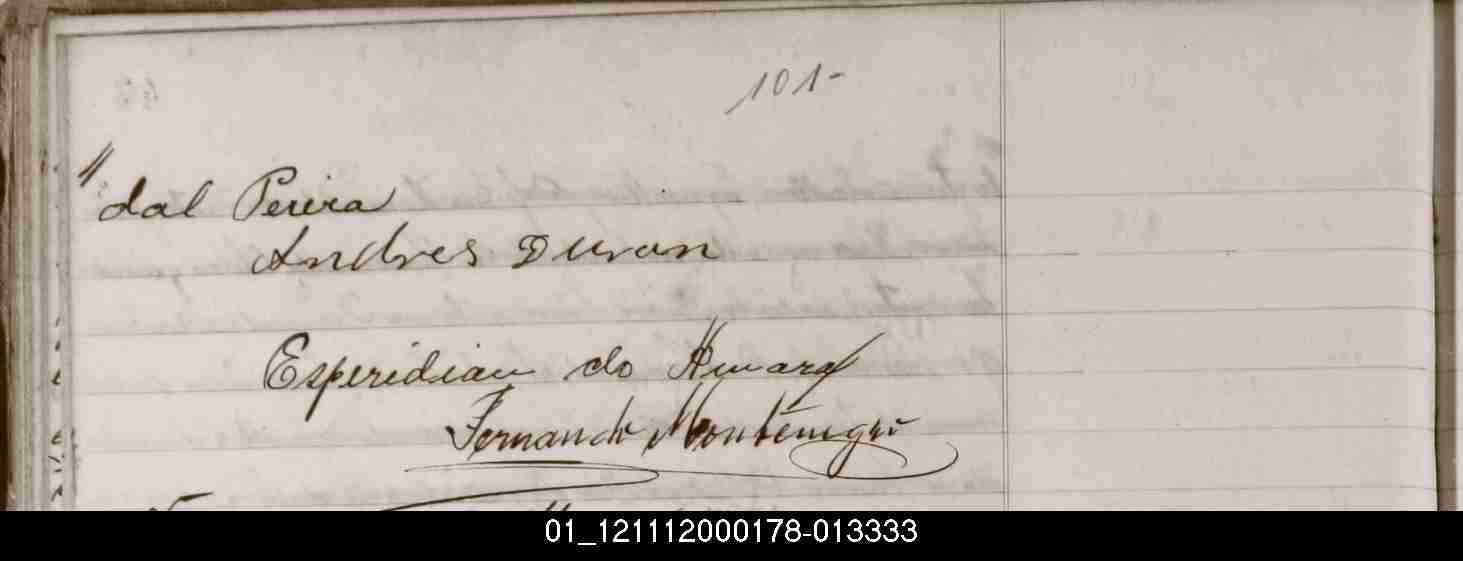 101-
" dal Pereira
Andres Duran
Esperidian do Amaral
Fernando Montenegro
01_121112000178-013333